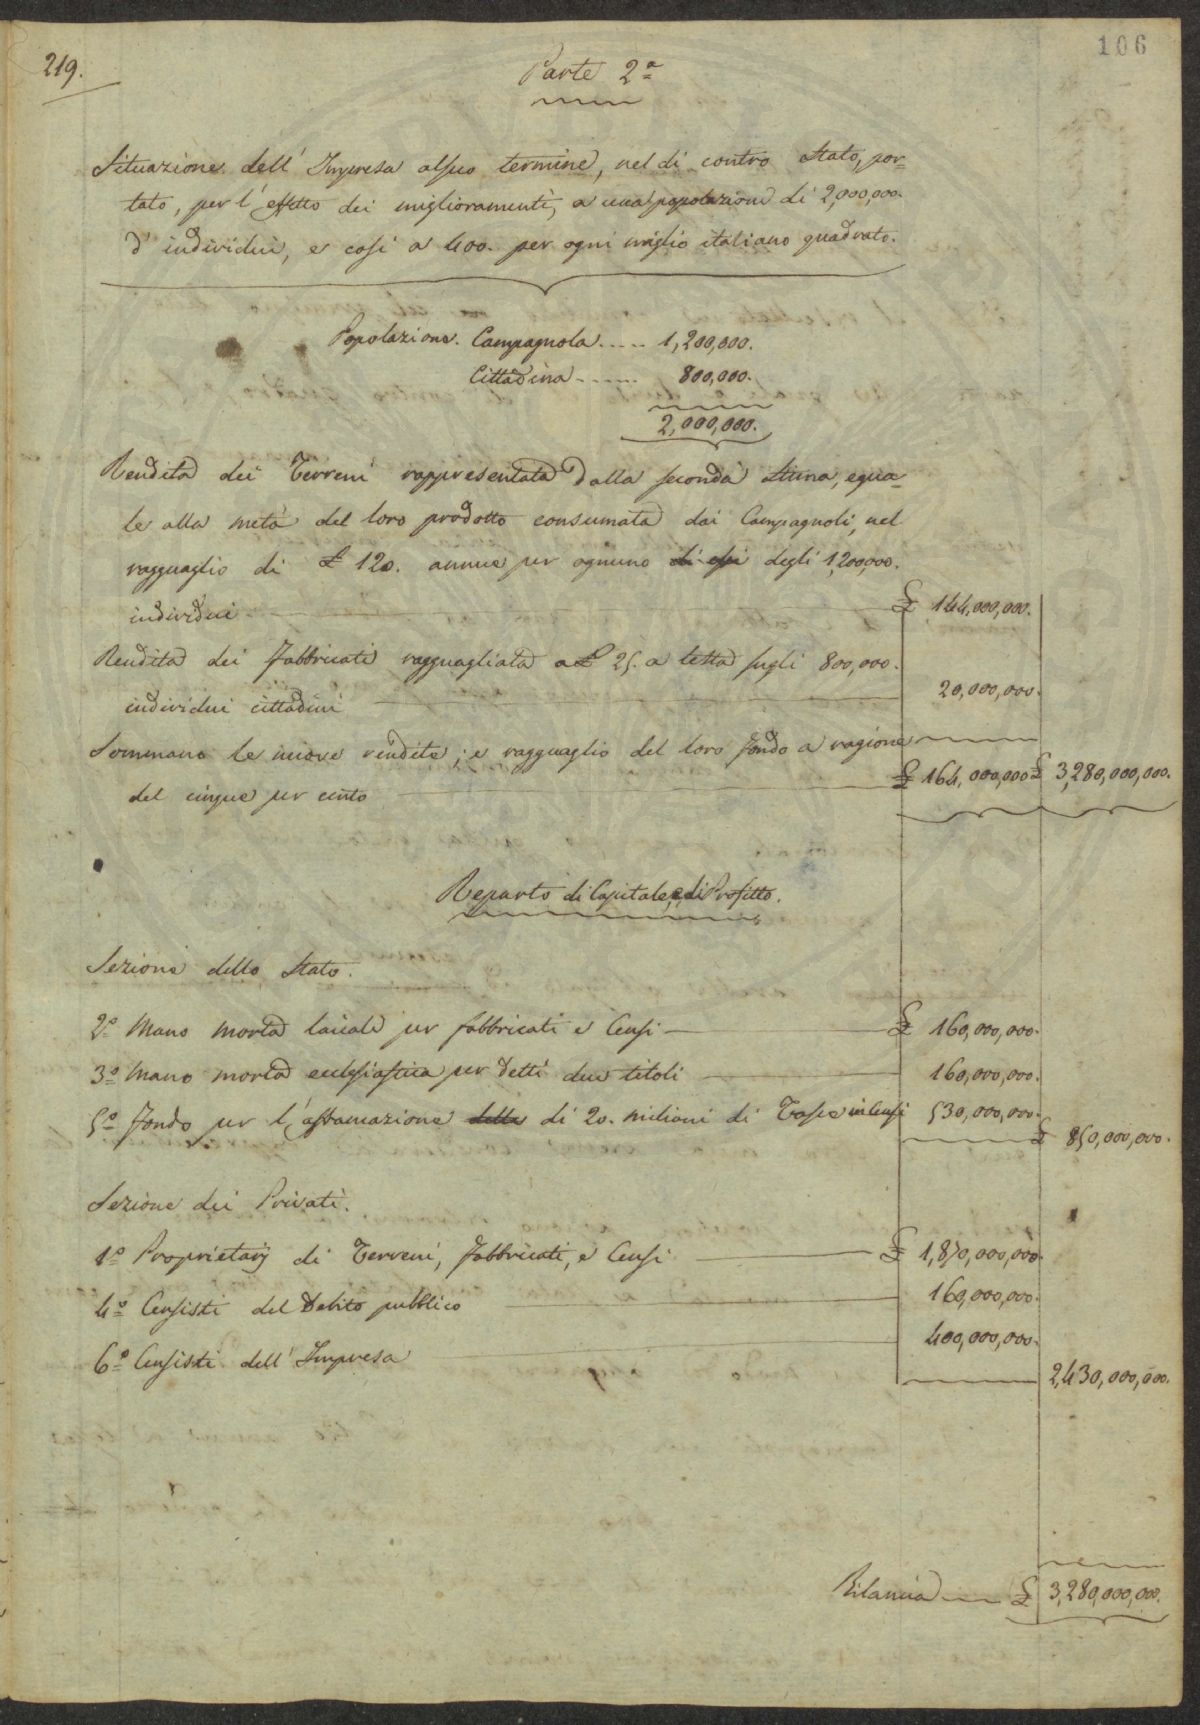 219.
106
Parte 2ª
Situazione dell' Impresa al suo termine, nel di contro Stato, por-
tato, per l'effetto dei miglioramenti, a una popolazione di 2,000,000.
d'individui, e così a 400. per ogni miglio italiano quadrato.
Popolazione. Campagnola..... 1,200,000.
Cittadina...... 800,000.
2,000,000.
Rendita dei Terreni rappresentata dalla seconda Stima, egua-
le alla metà del loro prodotto consumata dai Campagnoli, nel
ragguaglio di £ 120. annue per ognuno di essi degli 1,200,000.
individui £ 144,000,000.
Rendita dei Fabbricati ragguagliata a £ 25. a testa sugli 800,000.
individui cittadini 20,000,000.
Sommano le nuove rendite; e ragguaglio del loro fondo a ragione
del cinque per cento £ 164,000,000 £ 3,280,000,000.
Reparto di Capitale, e di Profitto.
Sezione dello Stato.
2º Mano morta laicale per fabbricati e Censi £ 160,000,000.
3º Mano morta ecclesiastica per detti due titoli 160,000,000.
5º Fondo per l'affrancazione delle di 20. milioni di Tasse in Censi 530,000,000.
£ 850,000,000.
Sezione dei Privati.
1º Proprietarj di Terreni, Fabbricati, e Censi £ 1,870,000,000.
4º Censisti del Debito pubblico 160,000,000.
6º Censisti dell' Impresa 400,000,000.
2,430,000,000.
Bilancia £ 3,280,000,000.